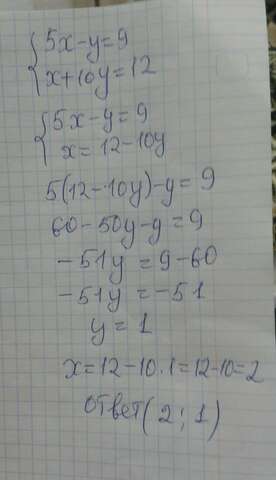 5x-y=9
x+10y=12
5x-y=9
x=12-10y
5(12-10y)-y=9
60-50y-y=9
-51y=9-60
-51y=-51
y=1
x=12-10·1=12-10=2
ответ(2;1)